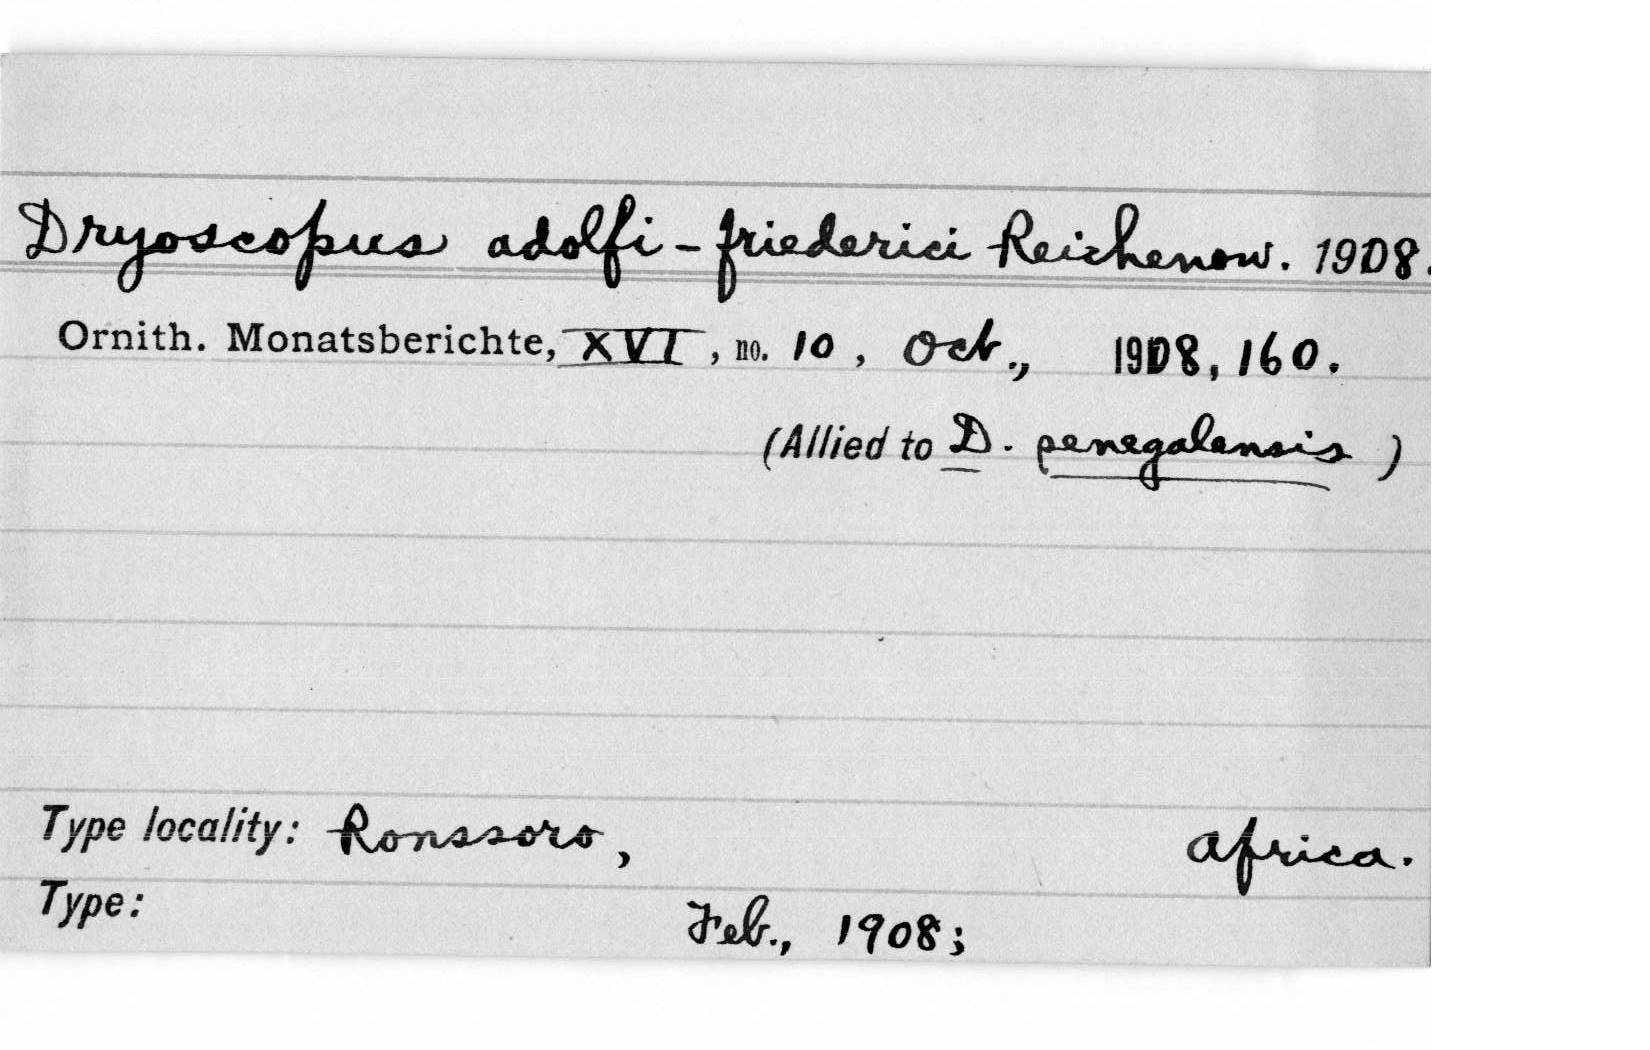 Dryoscopus adolfi-friederici Reichenow. 1908.
Ornith. Monatsberichte, XVI, no. 10, Oct., 1908, 160.
(Allied to D. senegalensis)
Type locality: Ronssoro, Africa.
Type: Feb., 1908;